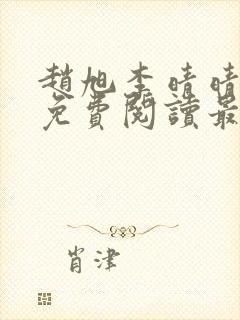 趙旭李晴晴
免費閱讀最
肖津